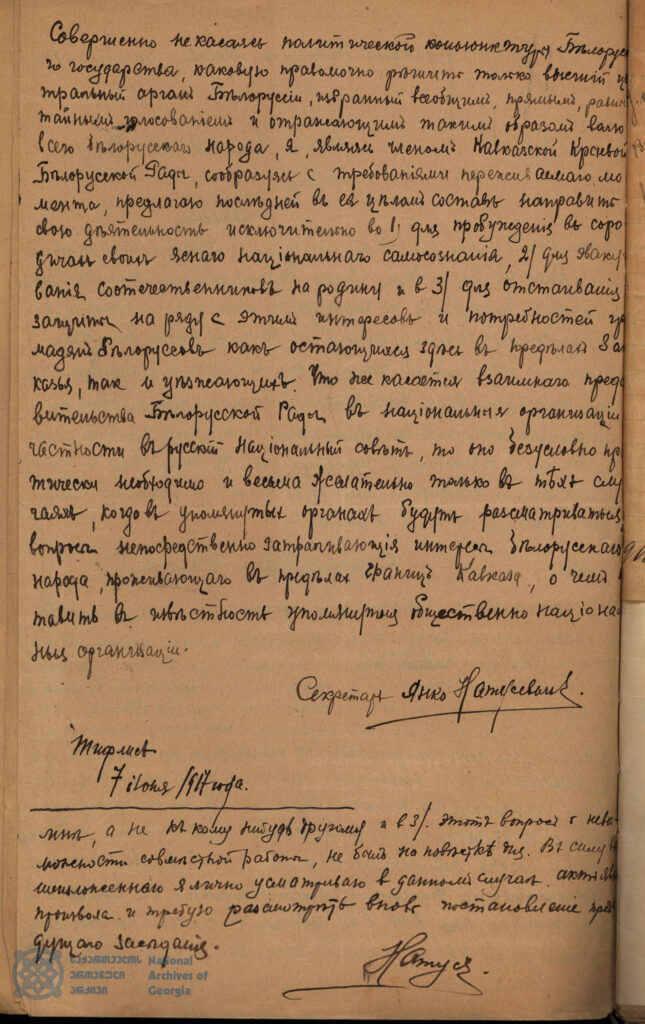 Совершенно не касаясь политической конъюнктуры Бѣлорус
го государства, каковую правомочно рѣшить только высшій ц
тральный органъ Бѣлоруссіи, избранный всеобщимъ, прямымъ, равн
тайнымъ голосованіемъ и отражающимъ такимъ образомъ волю
всего Бѣлорусскаго народа, я, являясь членомъ Кавказской Краевой
Бѣлорусской Рады, сообразуясь с требованіями переживаемаго мо
мента, предлагаю послѣдней въ ея цѣломъ составѣ направить
свою дѣятельность исключительно во 1) для пробужденія въ соро
дичахъ своихъ яснаго національнаго самосознанія, 2/ для эваку
ванія соотечественниковъ на родину и в 3/ для отстаиванія
защиты на ряду с этимъ интересовъ и потребностей гр
мадян Бѣлоруссовъ какъ остающихся здѣсь въ предѣлахъ За
казья, так и уѣзжающихъ. Что же касается взаимнаго предс
вительства Бѣлорусской Рады въ національныя организаціи
частности въ русскій національный совѣтъ, то оно безусловно пр
тически необходимо и весьма желательно только въ тѣхъ слу
чаяхъ, когда въ упомянутых органахъ будутъ рассматриваться
вопросы непосредственно затрагивающія интересы Бѣлорусскаго
народа, проживающаго въ предѣлах границъ Кавказа, о чемъ
тавить въ извѣстность упомянутыя общественно націона
ныя организаціи.
Секретарь Янко Натусевичъ.
Тифлисъ
7 іюня 1917 года.
мнѣ, а не къ кому нибудь другому и в 3/. этотъ вопросъ о невоз
можности совмѣстной работы, не былъ на повѣсткѣ дня. Въ силу в
шеизложеннаго я лично усматриваю в данномъ случаѣ актъ яв
произвола и требую разсмотрѣть вновь постановленіе пред
дущаго засѣданія.
Натусь.
საქართველოს
ეროვნული
არქივი
National
Archives of
Georgia